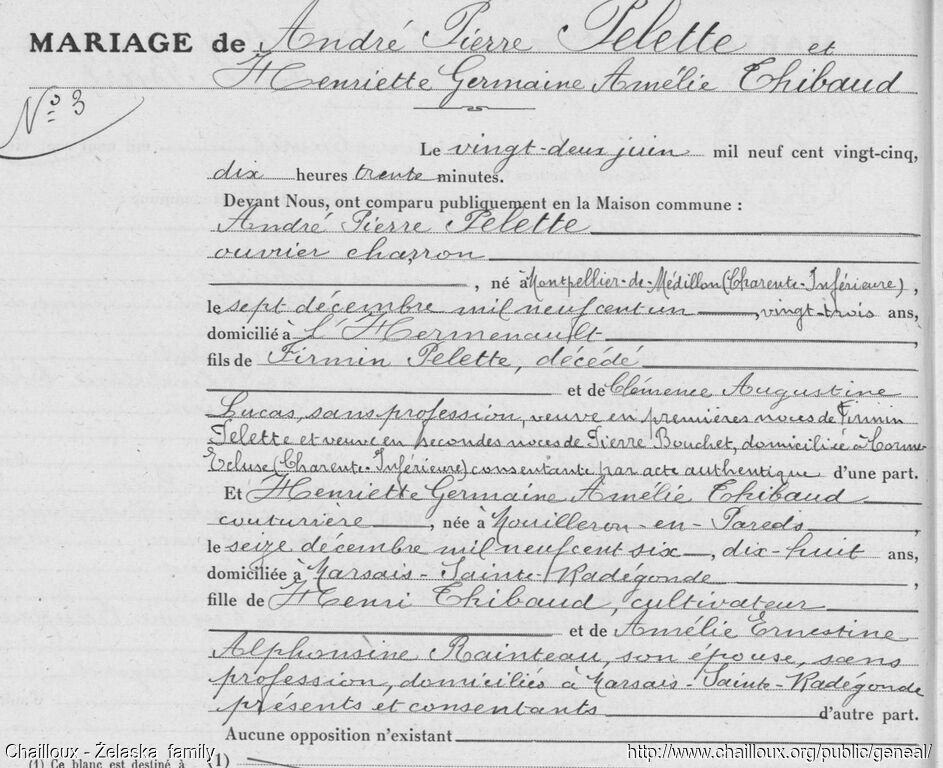 MARIAGE de André Pierre Pelette et
Henriette Germaine Amélie Thibaud
N° 3
Le vingt-deux juin mil neuf cent vingt-cinq,
dix heures trente minutes.
Devant Nous, ont comparu publiquement en la Maison commune :
André Pierre Pelette
ouvrier charron
, né à Montpellier-de-Médillon (Charente-Inférieure),
le sept décembre mil neuf cent un, vingt-trois ans,
domicilié à L'Hermenault,
fils de Firmin Pelette, décédé
et de Clémence Augustine
Lucas, sans profession, veuve en premières noces de Firmin
Pelette et veuve en secondes noces de Pierre Bouchet, domiciliée à Corme-
Ecluse (Charente-Inférieure) consentante par acte authentique d'une part.
Et Henriette Germaine Amélie Thibaud
couturière, née à Mouilleron-en-Pareds,
le seize décembre mil neuf cent six, dix-huit ans,
domiciliée à Marsais-Sainte-Radégonde,
fille de Henri Thibaud, cultivateur
et de Amélie Ernestine
Alphonsine Rainteau, son épouse, sans
profession, domiciliés à Marsais-Sainte-Radégonde
présents et consentants d'autre part.
Aucune opposition n'existant
Chailloux - Żelaska family
http://www.chailloux.org/public/geneal/
(1) Ce blanc est destiné à (1)